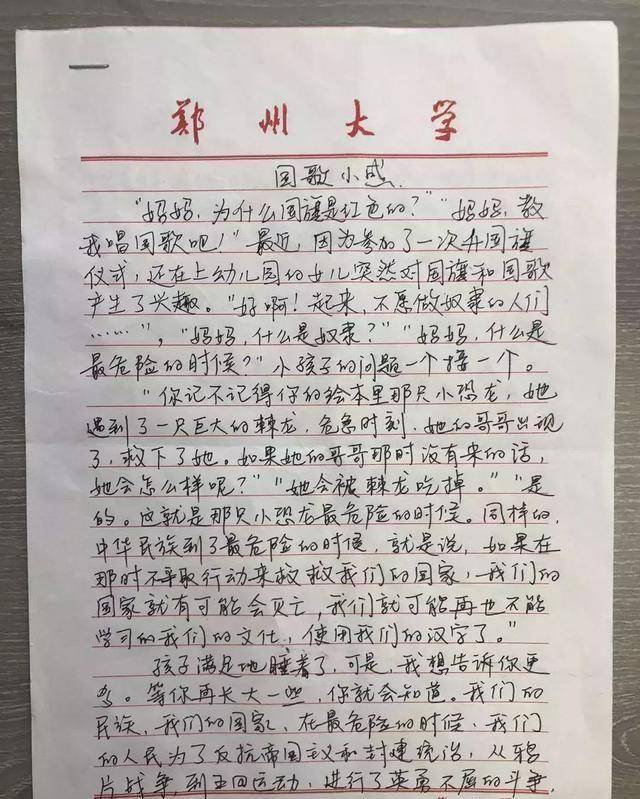 郑州大学
国歌小感
“妈妈，为什么国旗是红色的？”“妈妈，教
我唱国歌吧！”最近，因为参加了一次升国旗
仪式，还在上幼儿园的女儿突然对国旗和国歌
产生了兴趣。“好啊！起来，不愿做奴隶的人们
……”，“妈妈，什么是奴隶？”“妈妈，什么是
最危险的时候？”小孩子的问题一个接一个。
“你记不记得你的绘本里那只小恐龙，她
遇到了一只巨大的棘龙，危急时刻，她的哥哥出现
了，救下了她。如果她的哥哥那时没有来的话，
她会怎么样呢？”“她会被棘龙吃掉。”“是
的。这就是那只小恐龙最危险的时候。同样的，
中华民族到了最危险的时候，就是说，如果在
那时不采取行动来救救我们的国家，我们的
国家就有可能会灭亡，我们就可能再也不能
学习的我们的文化，使用我们的汉字了。”
孩子满足地睡着了，可是，我想告诉你更
多。等你再长大一些，你就会知道。我们的
民族，我们的国家，在最危险的时候，我们
的人民为了反抗帝国主义和封建统治，从鸦
片战争，到五四运动，进行了英勇不屈的斗争，